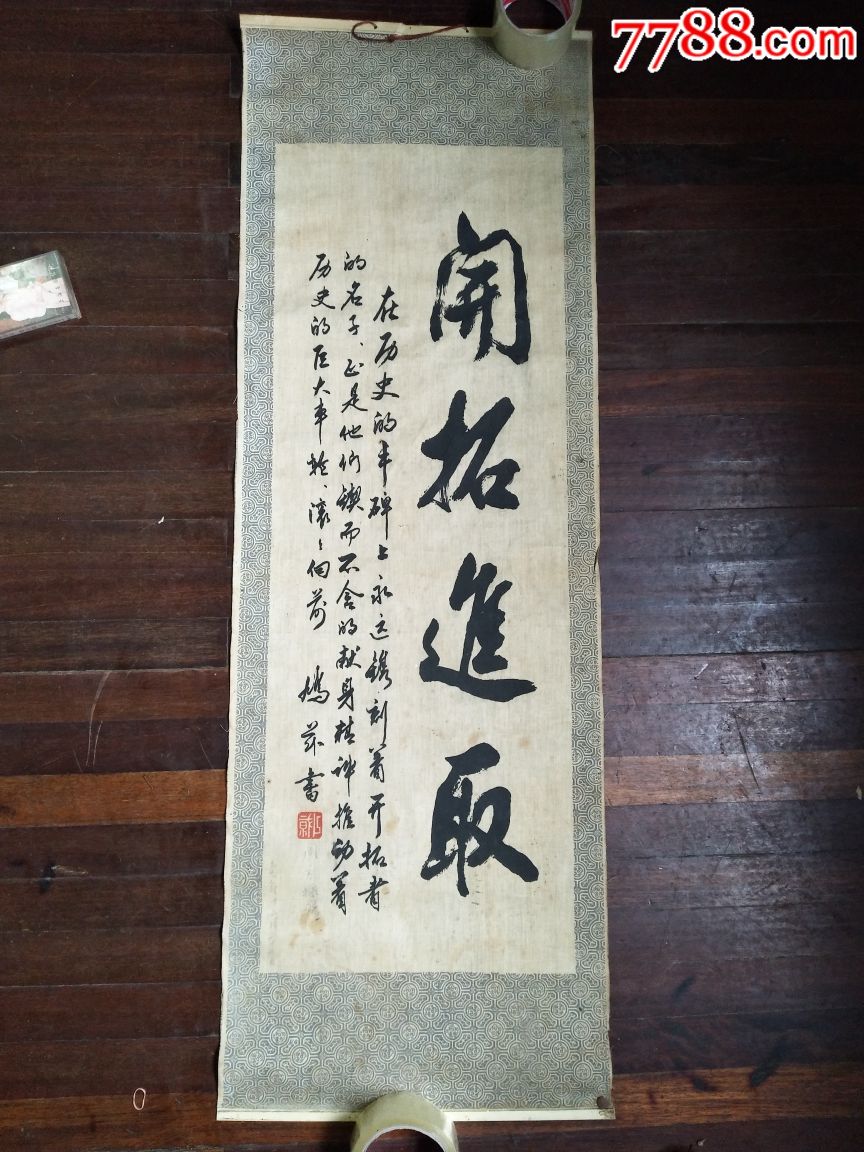 7788.com
開拓進取
在历史的丰碑上永远镌刻着开拓者
的名子、正是他们锲而不舍的献身精神推动着
历史的巨大车轮、滚〻向前
书